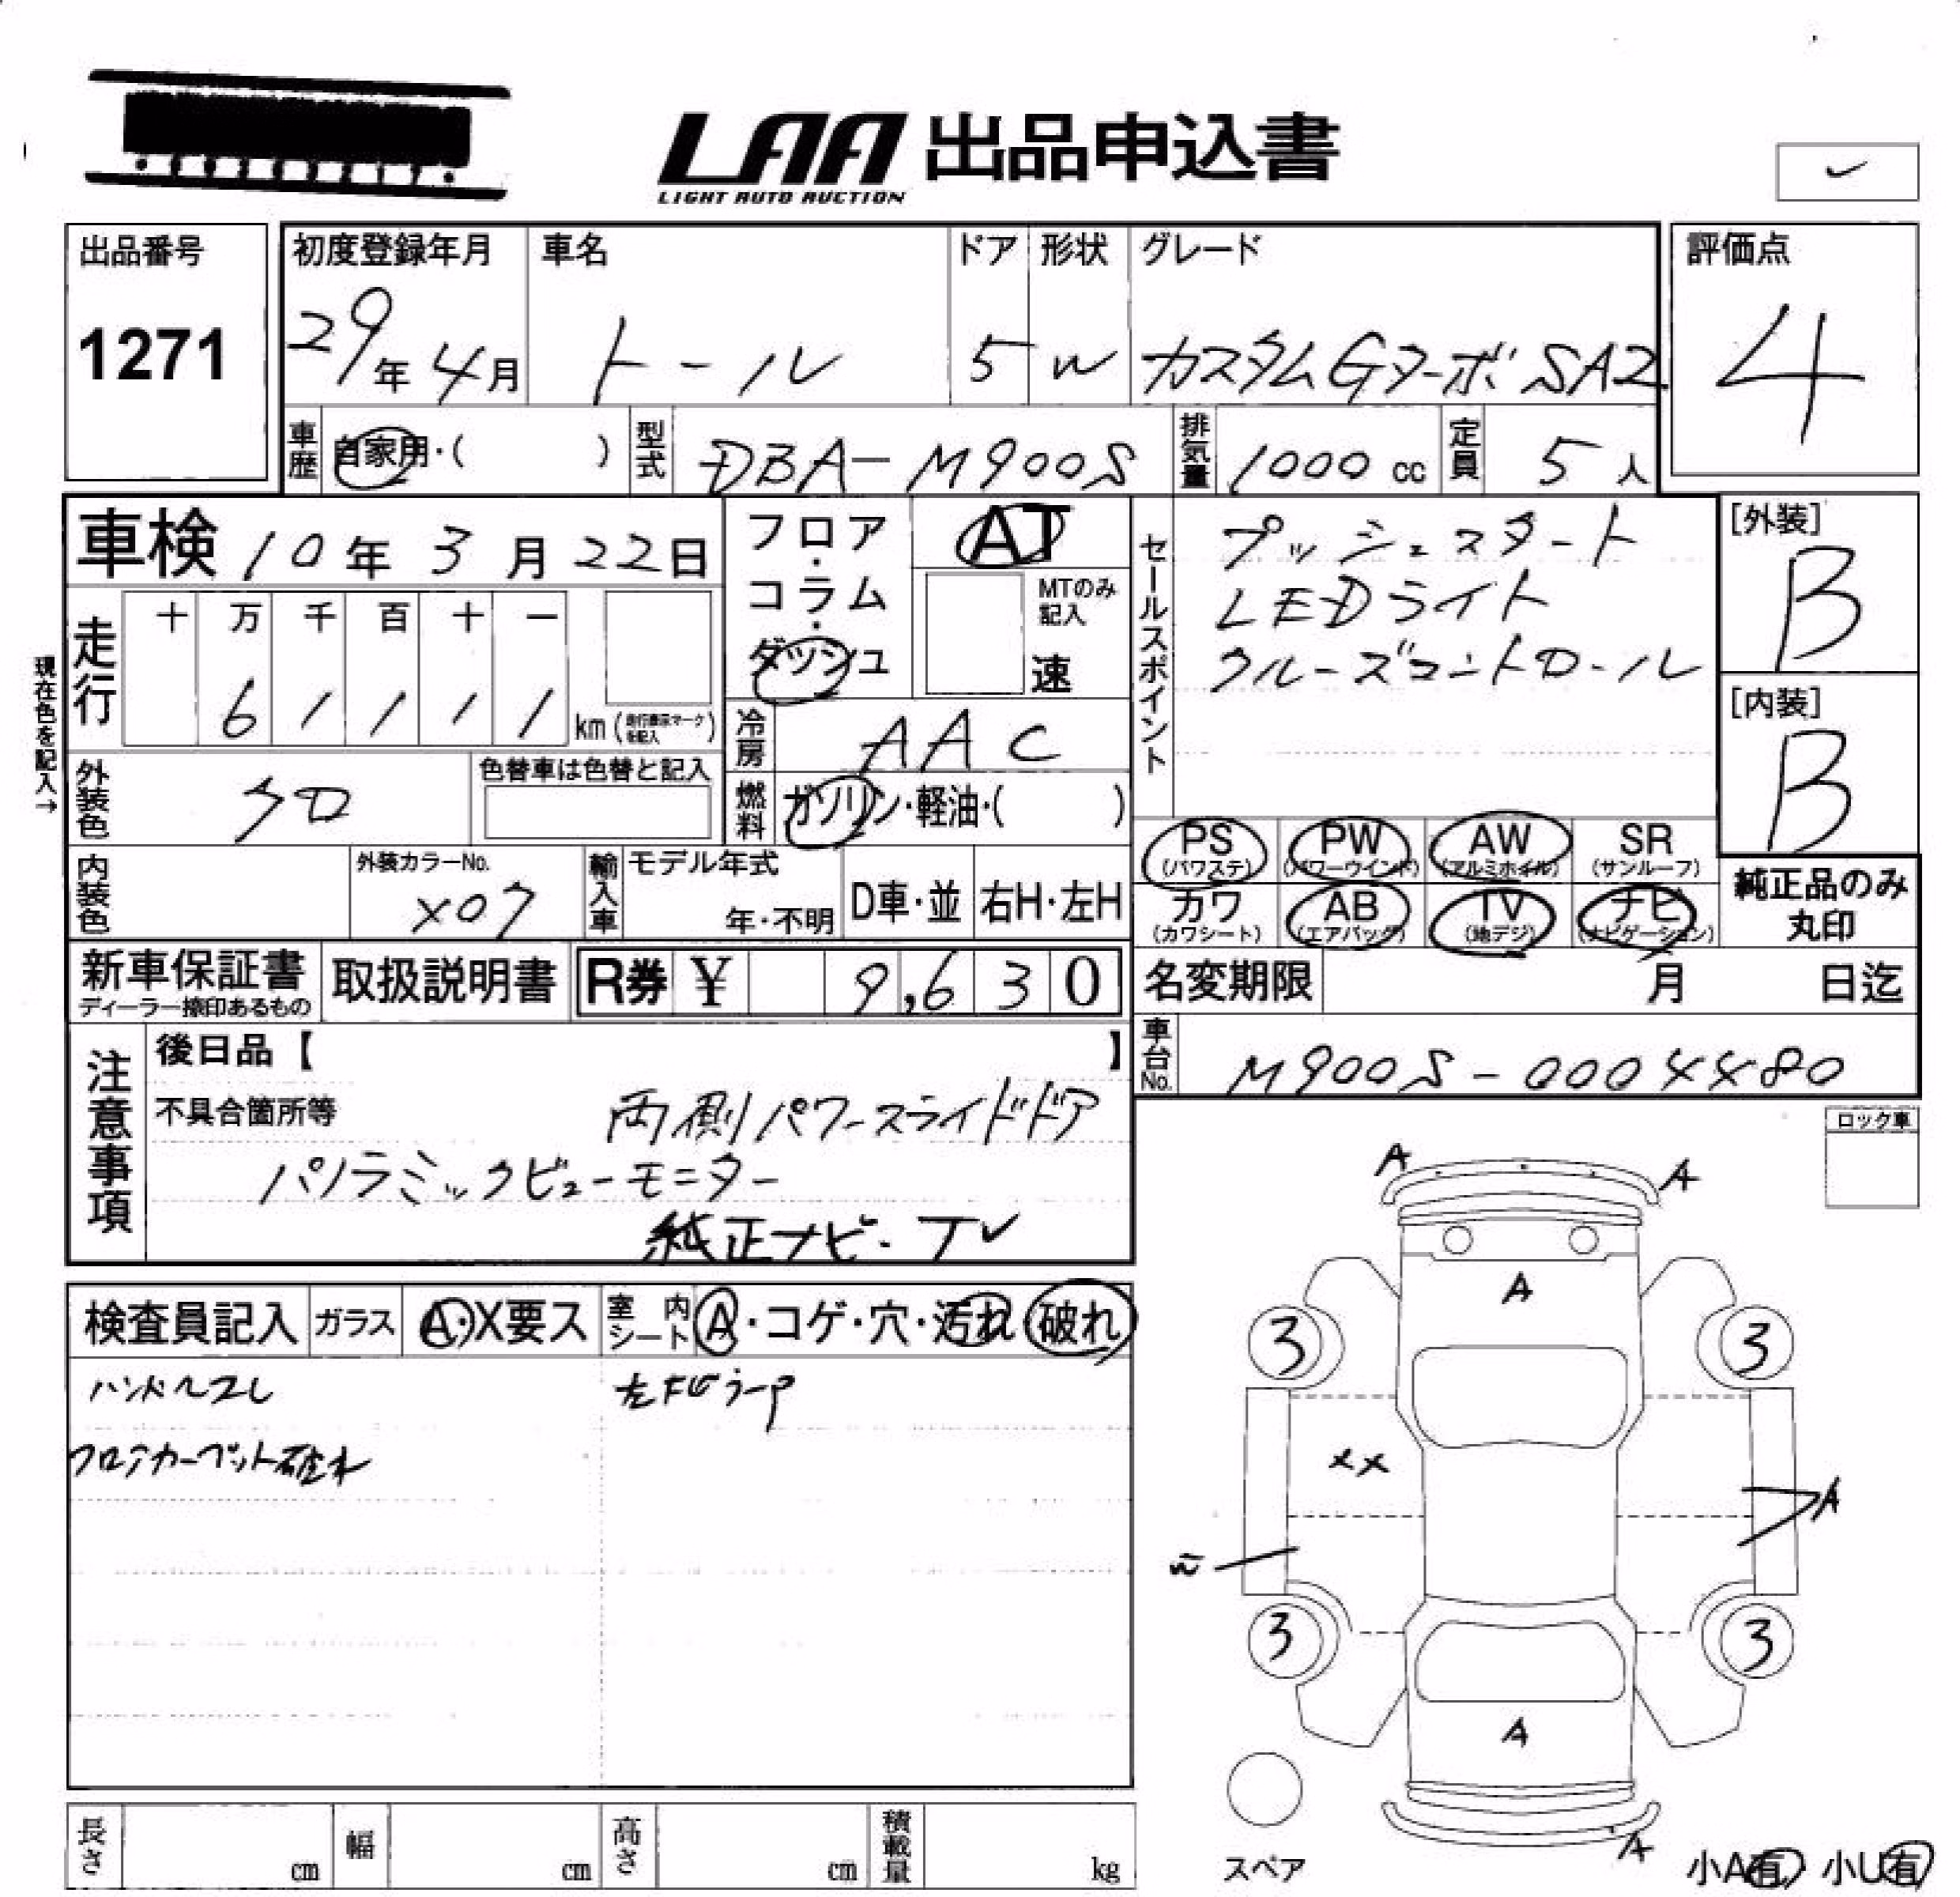 LAA 出品申込書
LIGHT AUTO AUCTION
出品番号
1271
初度登録年月
29年 4月
車名
トール
ドア
5
形状
W
グレード
カスタムGターボ SA2
評価点
4
車歴
自家用・( )
型式
DBA-M900S
排気量
1000 cc
定員
5 人
車検 10年 3月 22日
現在色を記入→
走行
十 万 千 百 十 一
6 1 1 1 1 km (走行表示マークを記入)
フロア・コラム・ダッシュ
AT
MTのみ記入
速
セールスポイント
プッシュスタート
LEDライト
クルーズコントロール
[外装]
B
[内装]
B
冷房
AAC
外装色
クロ
色替車は色替と記入
燃料
ガソリン・軽油・( )
PS (パワステ)
PW (パワーウインド)
AW (アルミホイル)
SR (サンルーフ)
カワ (カワシート)
AB (エアバッグ)
TV (地デジ)
ナビ (ナビゲーション)
純正品のみ
丸印
内装色
外装カラーNo.
X07
輸入車
モデル年式
年・不明
D車・並
右H・左H
新車保証書
ディーラー捺印あるもの
取扱説明書
R券 ¥ 9,630
名変期限 月 日迄
車台No.
M900S-0004480
注意事項
後日品【 】
不具合箇所等
両側パワースライドドア
パノラミックビューモニター
純正ナビ・TV
ロック車
検査員記入
ガラス
A・X要ス
室内シート
A・コゲ・穴・汚れ 破れ
ハンドルスレ
フロアカーペット破れ
A
A
A
3
3
XX
A
3
3
A
A
スペア
小A有 小U有
長さ cm
幅 cm
高さ cm
積載量 kg